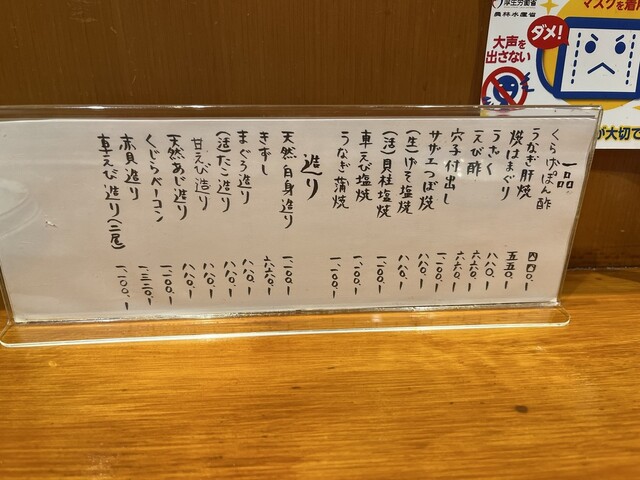 一品
くらげぽん酢 四四〇.ー
うなぎ肝焼 五五〇.ー
焼はまぐり 八八〇.ー
うざく 六六〇.ー
えび酢 六六〇.ー
穴子付出し 一.一〇〇.ー
サザエつぼ焼 八八〇.ー
(生)げそ塩焼 八八〇.ー
(活)貝柱塩焼 一.一〇〇.ー
車えび塩焼 一.一〇〇.ー
うなぎ蒲焼 一.一〇〇.ー
造り
天然白身造り 一.一〇〇.ー
きずし 六六〇.ー
まぐろ造り 八八〇.ー
(活)たこ造り 八八〇.ー
甘えび造り 八八〇.ー
天然あじ造り 八八〇.ー
くじらベーコン 一.一〇〇.ー
赤貝造り 一.三二〇.ー
車えび造り(二尾) 一.一〇〇.ー
厚生労働省
農林水産省
マスクを着用
大声を
出さない
ダメ!
が大切で